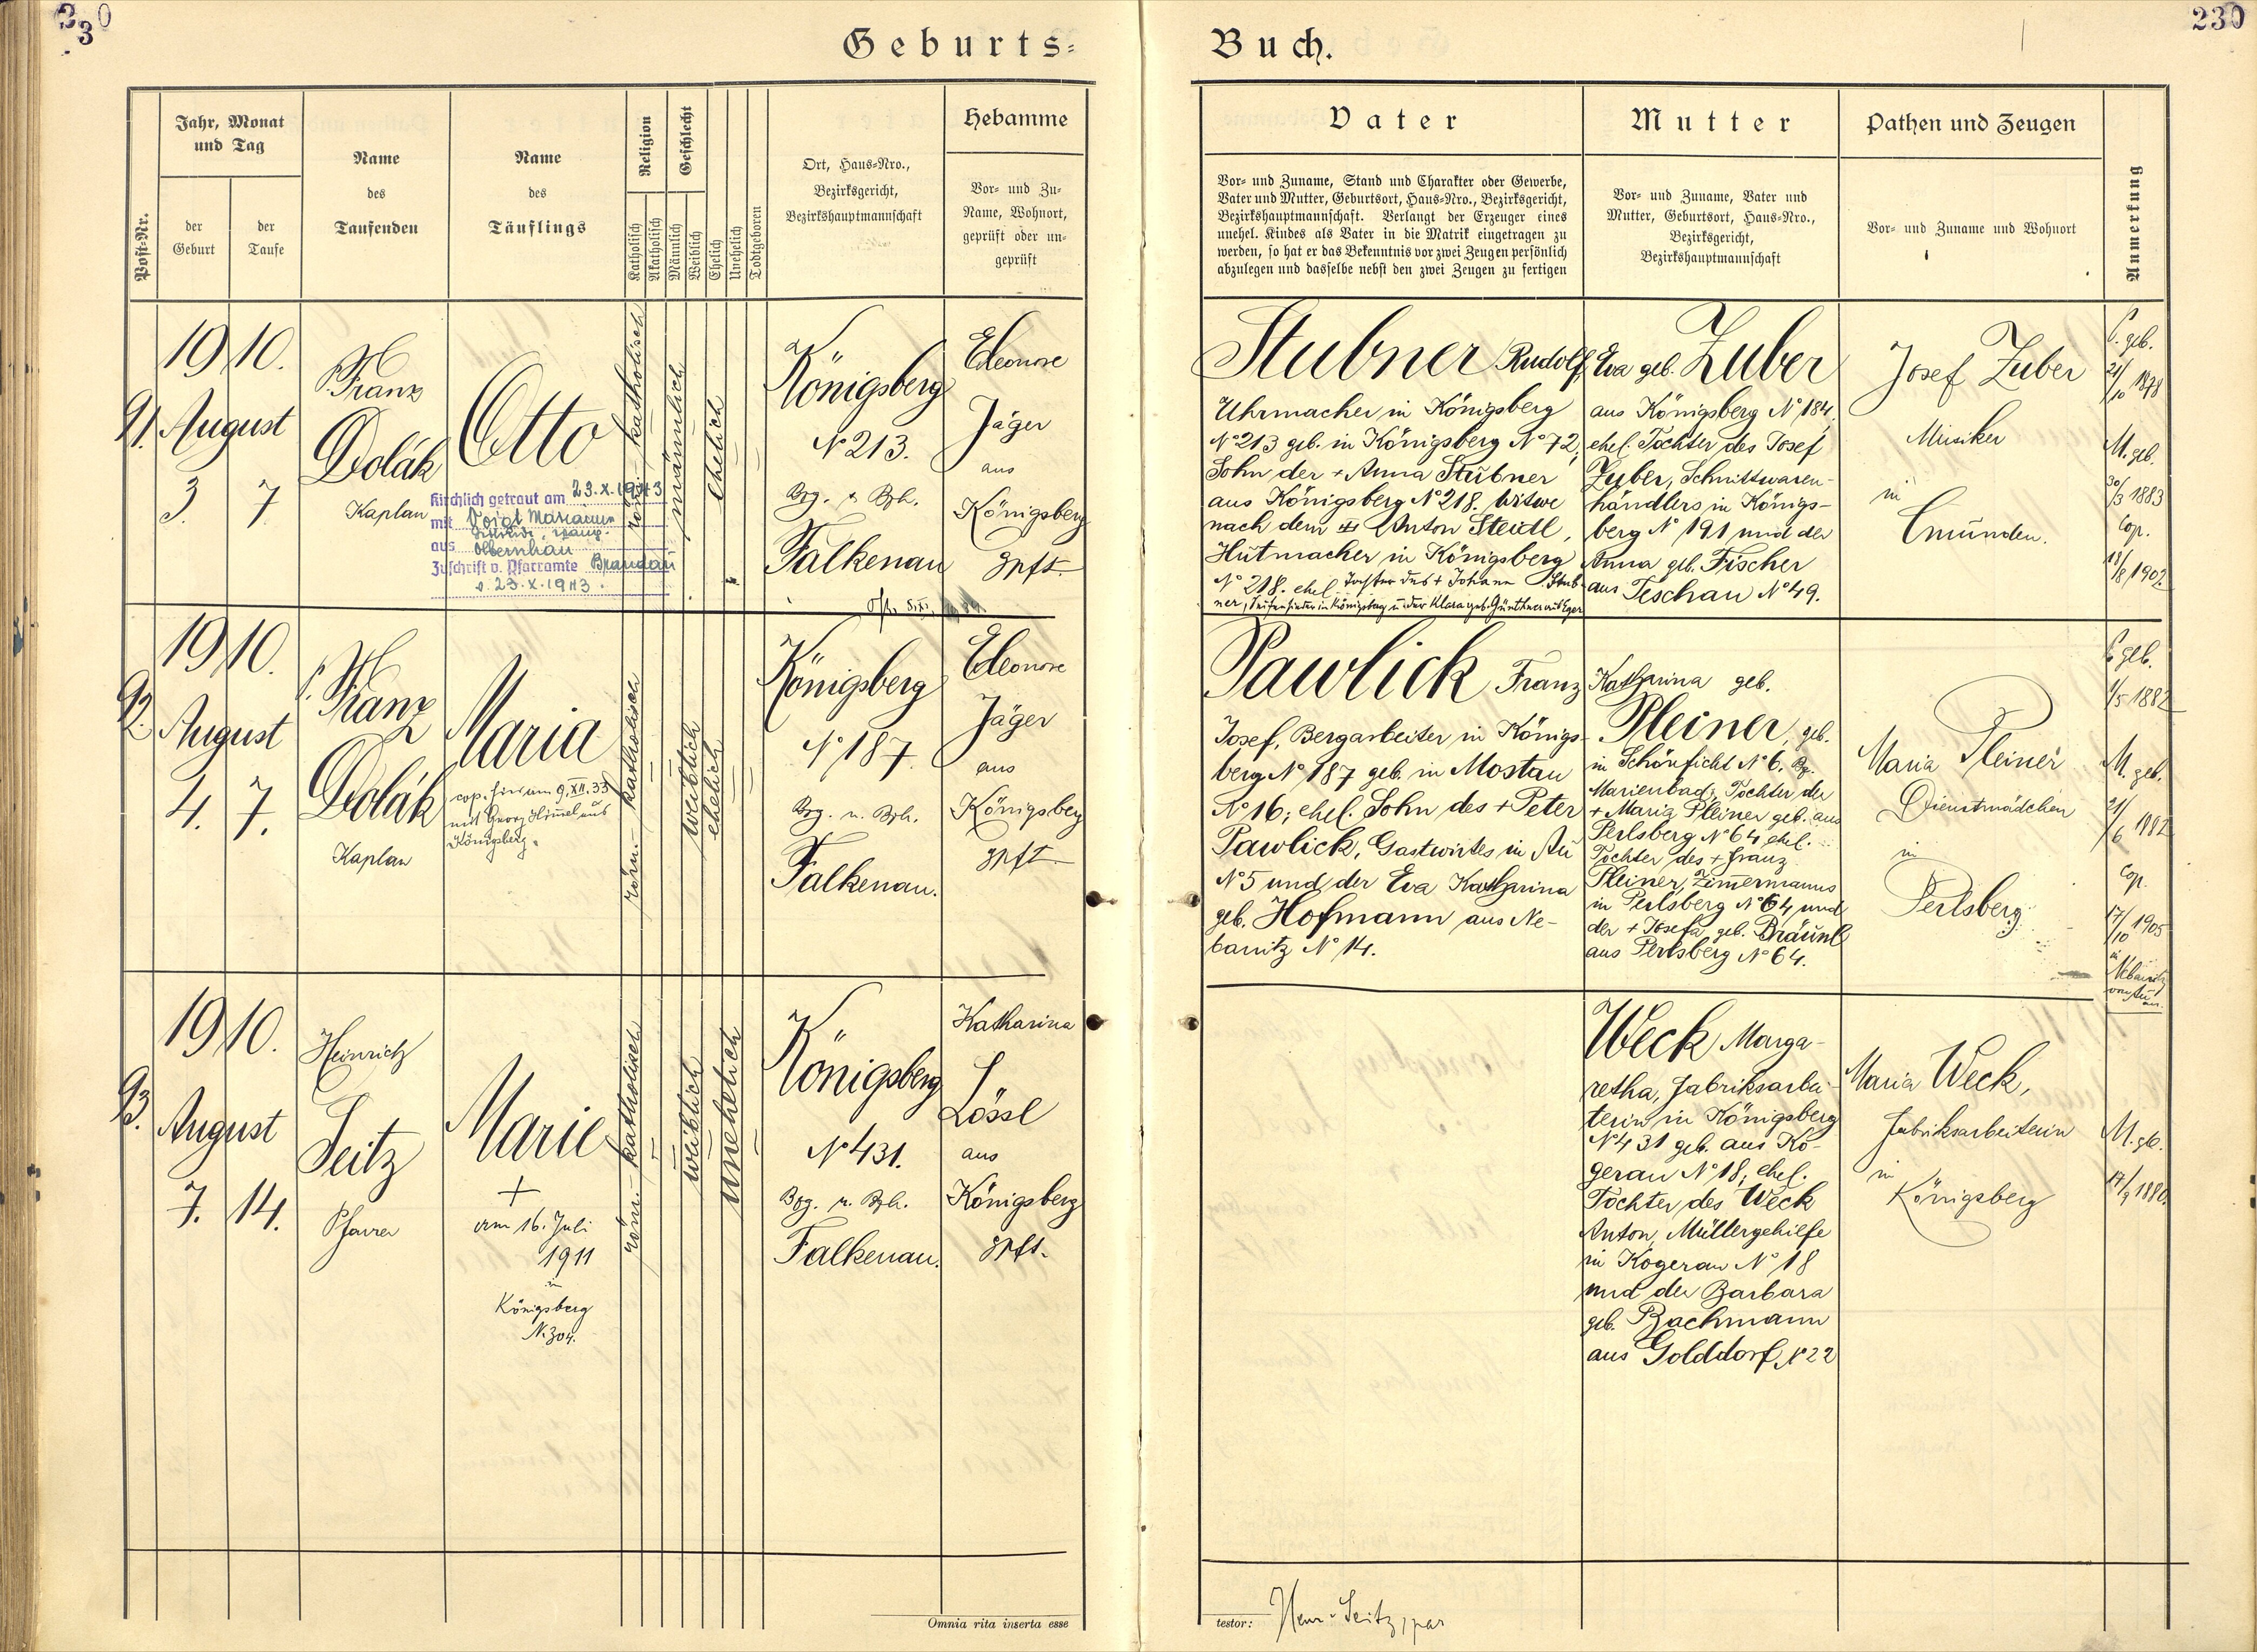 230
Geburts-
Post-Nr.
Jahr, Monat
und Tag
der
Geburt
der
Taufe
Name
des
Taufenden
Name
des
Täuflings
Religion
Katholisch
Akatholisch
Geschlecht
Männlich
Weiblich
Ehelich
Unehelich
Todtgeboren
Ort, Haus-Nro.,
Bezirksgericht,
Bezirkshauptmannschaft
Hebamme
Vor- und Zu-
Name, Wohnort,
geprüft oder un-
geprüft
91.
1910.
August
3. 7
P. Franz
Dolák
Kaplan
Otto
Kirchlich getraut am 23.X.1943
mit Voigt Marianne
aus Olbernhau
Zuschrift v. Pfarramte Brandau
v. 23.X.1943.
röm.-katholisch
männlich
ehelich
Königsberg
N° 213.
Bzg. u. Bzh.
Falkenau
Eleonore
Jäger
aus
Königsberg
gpft.
92.
1910.
August
4. 7.
P. Franz
Dolák
Kaplan
Maria
cop. hier am 9.XII.33
mit Georg Himmel aus
Königsberg.
röm.-katholisch
weiblich
ehelich
Königsberg
N° 187.
Bzg. u. Bzh.
Falkenau.
Eleonore
Jäger
aus
Königsberg
gpft.
93.
1910.
August
7. 14.
Heinrich
Seitz
Pfarrer
Marie
+
am 16. Juli
1911
in
Königsberg
N. 304.
röm.-katholisch
weiblich
unehelich
Königsberg
N° 431.
Bzg. u. Bzh.
Falkenau.
Katharina
Lössl
aus
Königsberg
gpft.
Omnia rita inserta esse
Buch.
230
Vater
Vor- und Zuname, Stand und Charakter oder Gewerbe,
Vater und Mutter, Geburtsort, Haus-Nro., Bezirksgericht,
Bezirkshauptmannschaft. Verlangt der Erzeuger eines
unehel. Kindes als Vater in die Matrik eingetragen zu
werden, so hat er das Bekenntnis vor zwei Zeugen persönlich
abzulegen und dasselbe nebst den zwei Zeugen zu fertigen
Mutter
Vor- und Zuname, Vater und
Mutter, Geburtsort, Haus-Nro.,
Bezirksgericht,
Bezirkshauptmannschaft
Pathen und Zeugen
Vor- und Zuname und Wohnort
Anmerkung
Stubner Rudolf,
Uhrmacher in Königsberg
N° 213 geb. in Königsberg N° 72,
Sohn der + Anna Stübner
aus Königsberg N° 218. Witwe
nach dem Anton Steidl,
Hutmacher in Königsberg
N° 218. ehel. Tochter des + Johann Stub-
ner, Seifensieder in Königsberg u. der Klara geb. Günthner aus Eger
Eva geb. Zuber
aus Königsberg N° 184,
ehel. Tochter des Josef
Zuber, Schnittwaren-
händlers in Königs-
berg N° 191 und der
Anna geb. Fischer
aus Teschau N° 49.
Josef Zuber
Musiker
in
Gmünden.
V. geb.
21/10 1878
M. geb.
30/3 1883
Cop.
18/8 1902
Pawlick Franz
Josef, Bergarbeiter in Königs-
berg N° 187 geb. in Mostau
N° 16; ehel. Sohn des + Peter
Pawlick, Gastwirtes in Au
N° 5 und der Eva Katharina
geb. Hofmann aus Ne-
banitz N° 14.
Katharina geb.
Pleiner, geb.
in Schönficht N° 6, Bz.
Marienbad; Tochter der
+ Maria Pleiner geb. aus
Perlsberg N° 64 ehel.
Tochter des + Franz
Pleiner, Zimmermanns
in Perlsberg N° 64 und
der + Josefa geb. Bräunl
aus Perlsberg N° 64.
Maria Pleiner
Dienstmädchen
in
Perlsberg
V. geb.
1/5 1882
M. geb.
21/6 1882
Cop.
17/10 1905
in
Nebanitz
Weck Marga-
retha, Fabriksarbei-
terin in Königsberg
N° 431 geb. aus Ko-
gerau N° 18; ehel.
Tochter des Weck
Anton, Müllergehilfe
in Kogerau N° 18
und der Barbara
geb. Bachmann
aus Golddorf N° 22
Maria Weck,
Fabriksarbeiterin
in
Königsberg
M. geb.
17/9 1880.
testor: Henr. Seitz, par